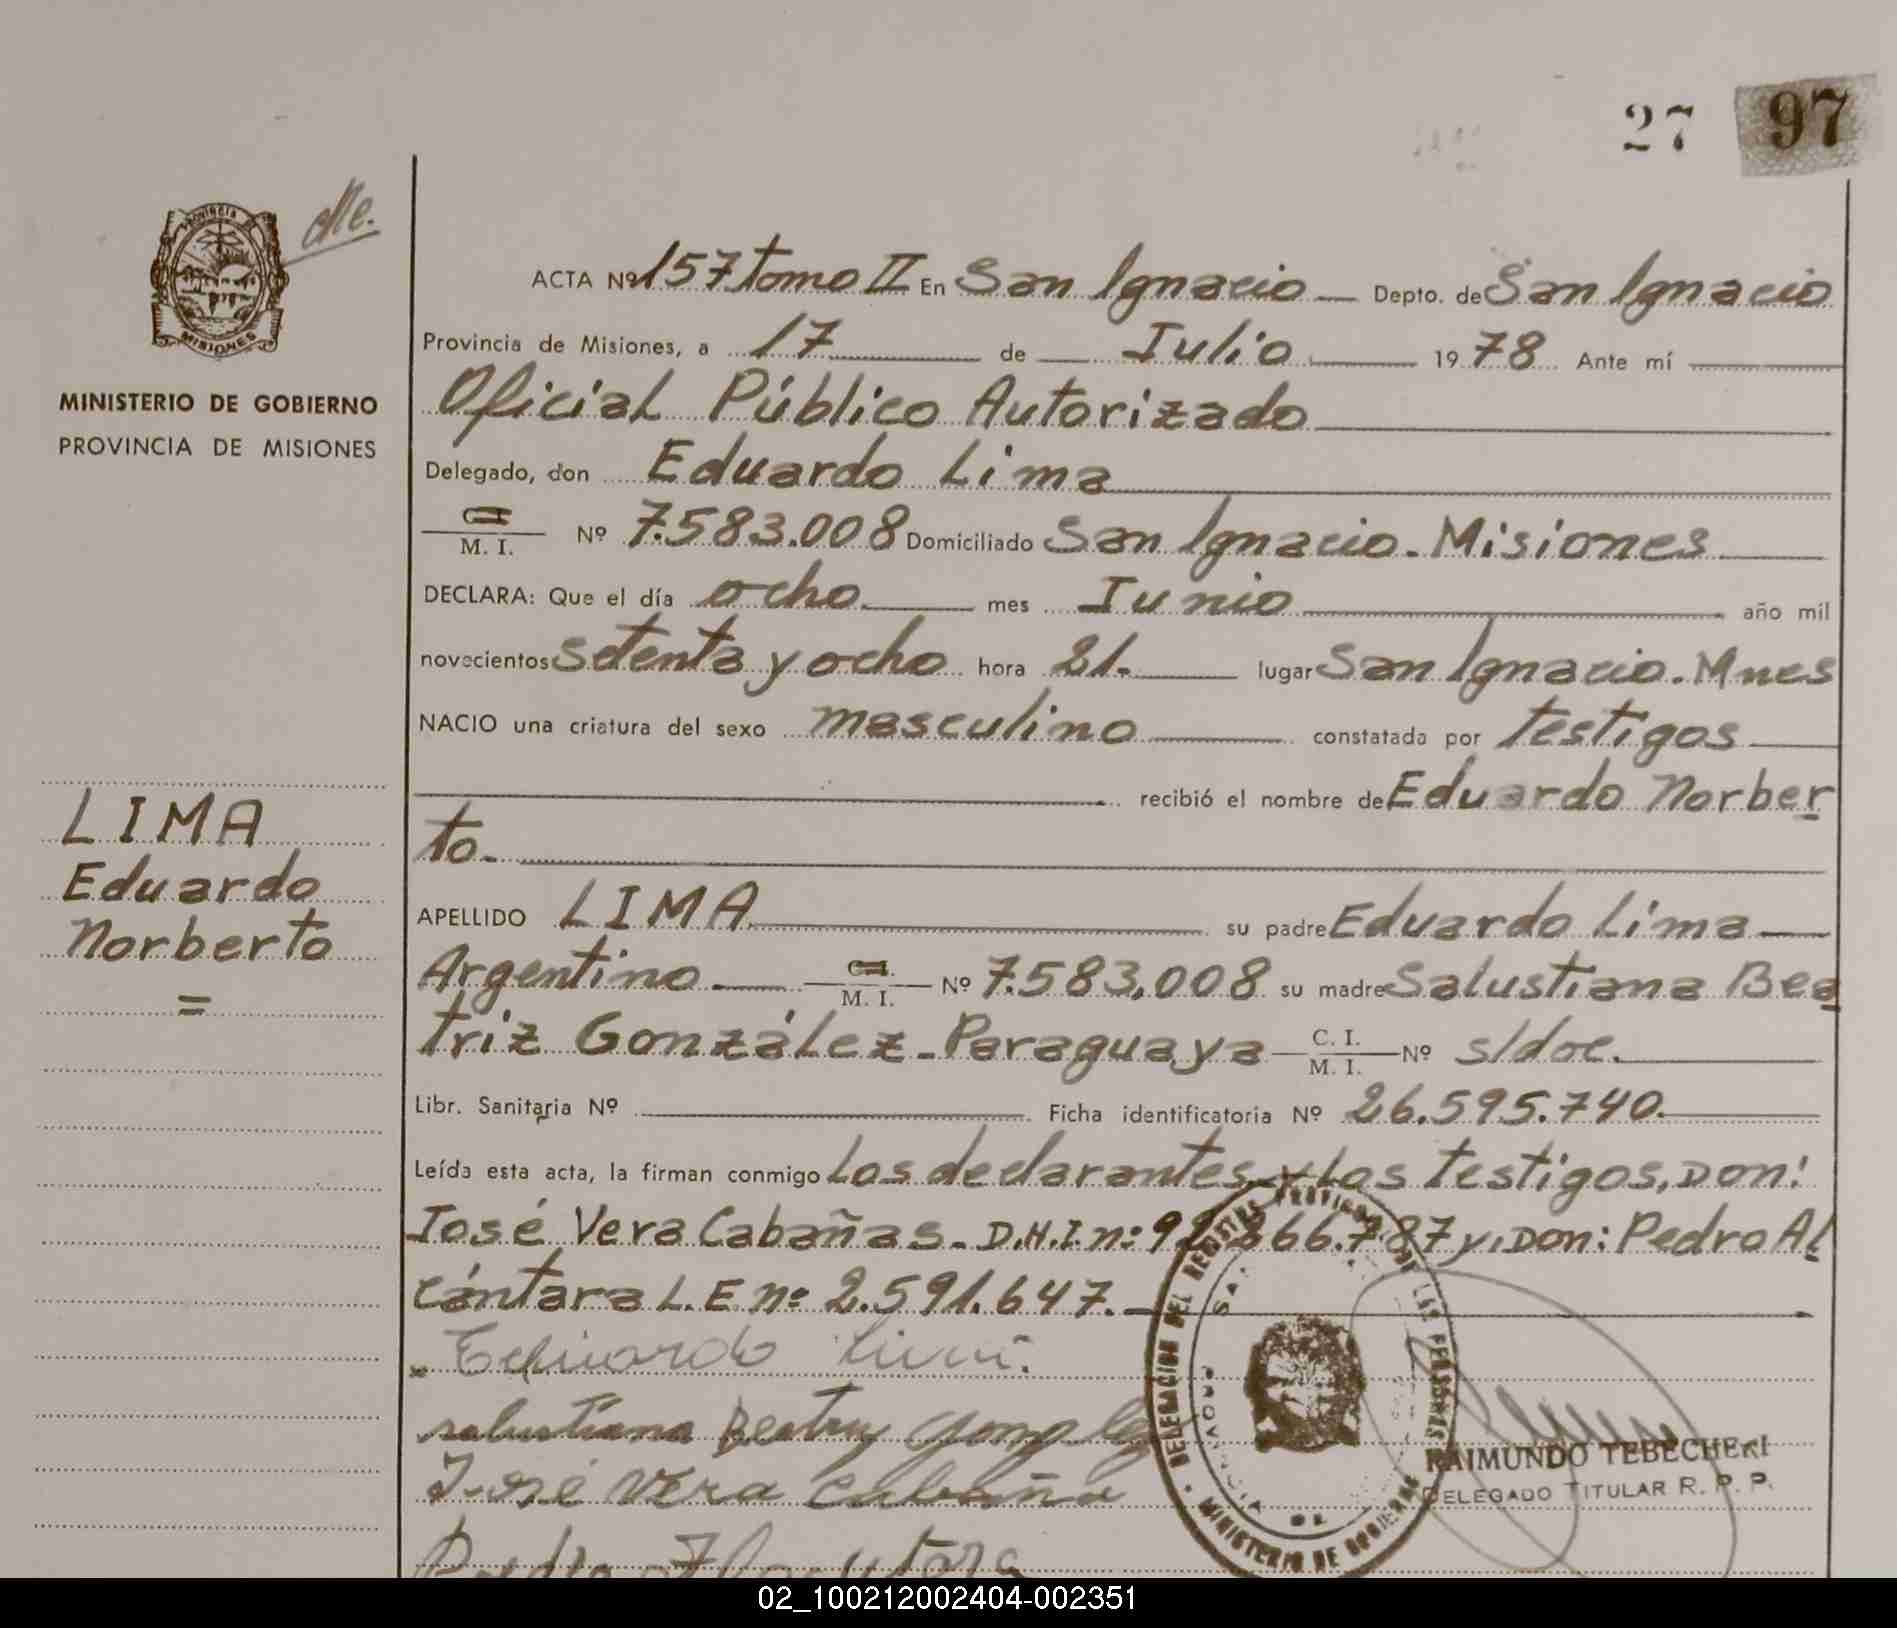 27 97
Me.
PROVINCIA DE
MISIONES
MINISTERIO DE GOBIERNO
PROVINCIA DE MISIONES
LIMA
Eduardo
Norberto
=
ACTA Nº 157 tomo II En San Ignacio Depto. de San Ignacio
Provincia de Misiones, a 17 de Julio 1978 Ante mí
Oficial Público Autorizado
Delegado, don Eduardo Lima
C. I.
M. I. Nº 7.583.008 Domiciliado San Ignacio. Misiones
DECLARA: Que el día ocho mes Junio año mil
novecientos setenta y ocho hora 21. lugar San Ignacio. Mnes
NACIO una criatura del sexo masculino constatada por testigos
recibió el nombre de Eduardo Norber
to.
APELLIDO LIMA su padre Eduardo Lima
Argentino C. I. M. I. Nº 7.583,008 su madre Salustiana Bea
triz González - Paraguaya C. I. M. I. Nº s/doc.
Libr. Sanitaria Nº Ficha identificatoria Nº 26.595.740.
Leída esta acta, la firman conmigo Los declarantes y Los testigos, Don:
José Vera Cabañas. D.N.I. nº: 92.366.787 y, Don: Pedro Al
cántara L.E nº 2.591.647.
Eduardo Lima.
salustiana Beatriz Gonzalez
José Vera Cabaña
Pedro Alcantara
DELEGACION DEL REGISTRO PROVINCIAL DE LAS PERSONAS
MINISTERIO DE GOBIERNO
RAIMUNDO TEBECHERI
DELEGADO TITULAR R. P. P.
02_100212002404-002351